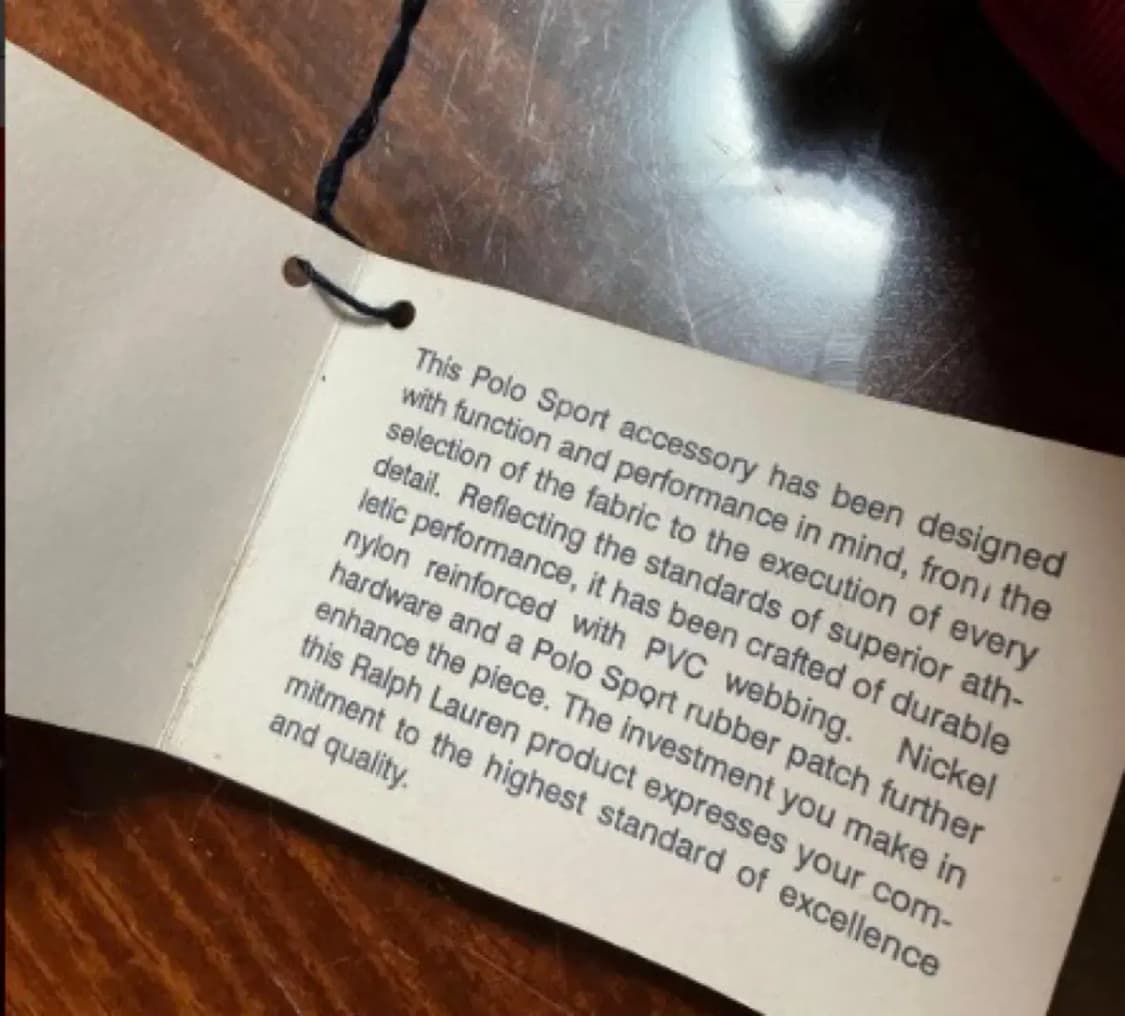 This Polo Sport accessory has been designed
with function and performance in mind, from the
selection of the fabric to the execution of every
detail. Reflecting the standards of superior ath-
letic performance, it has been crafted of durable
nylon reinforced with PVC webbing. Nickel
hardware and a Polo Sport rubber patch further
enhance the piece. The investment you make in
this Ralph Lauren product expresses your com-
mitment to the highest standard of excellence
and quality.